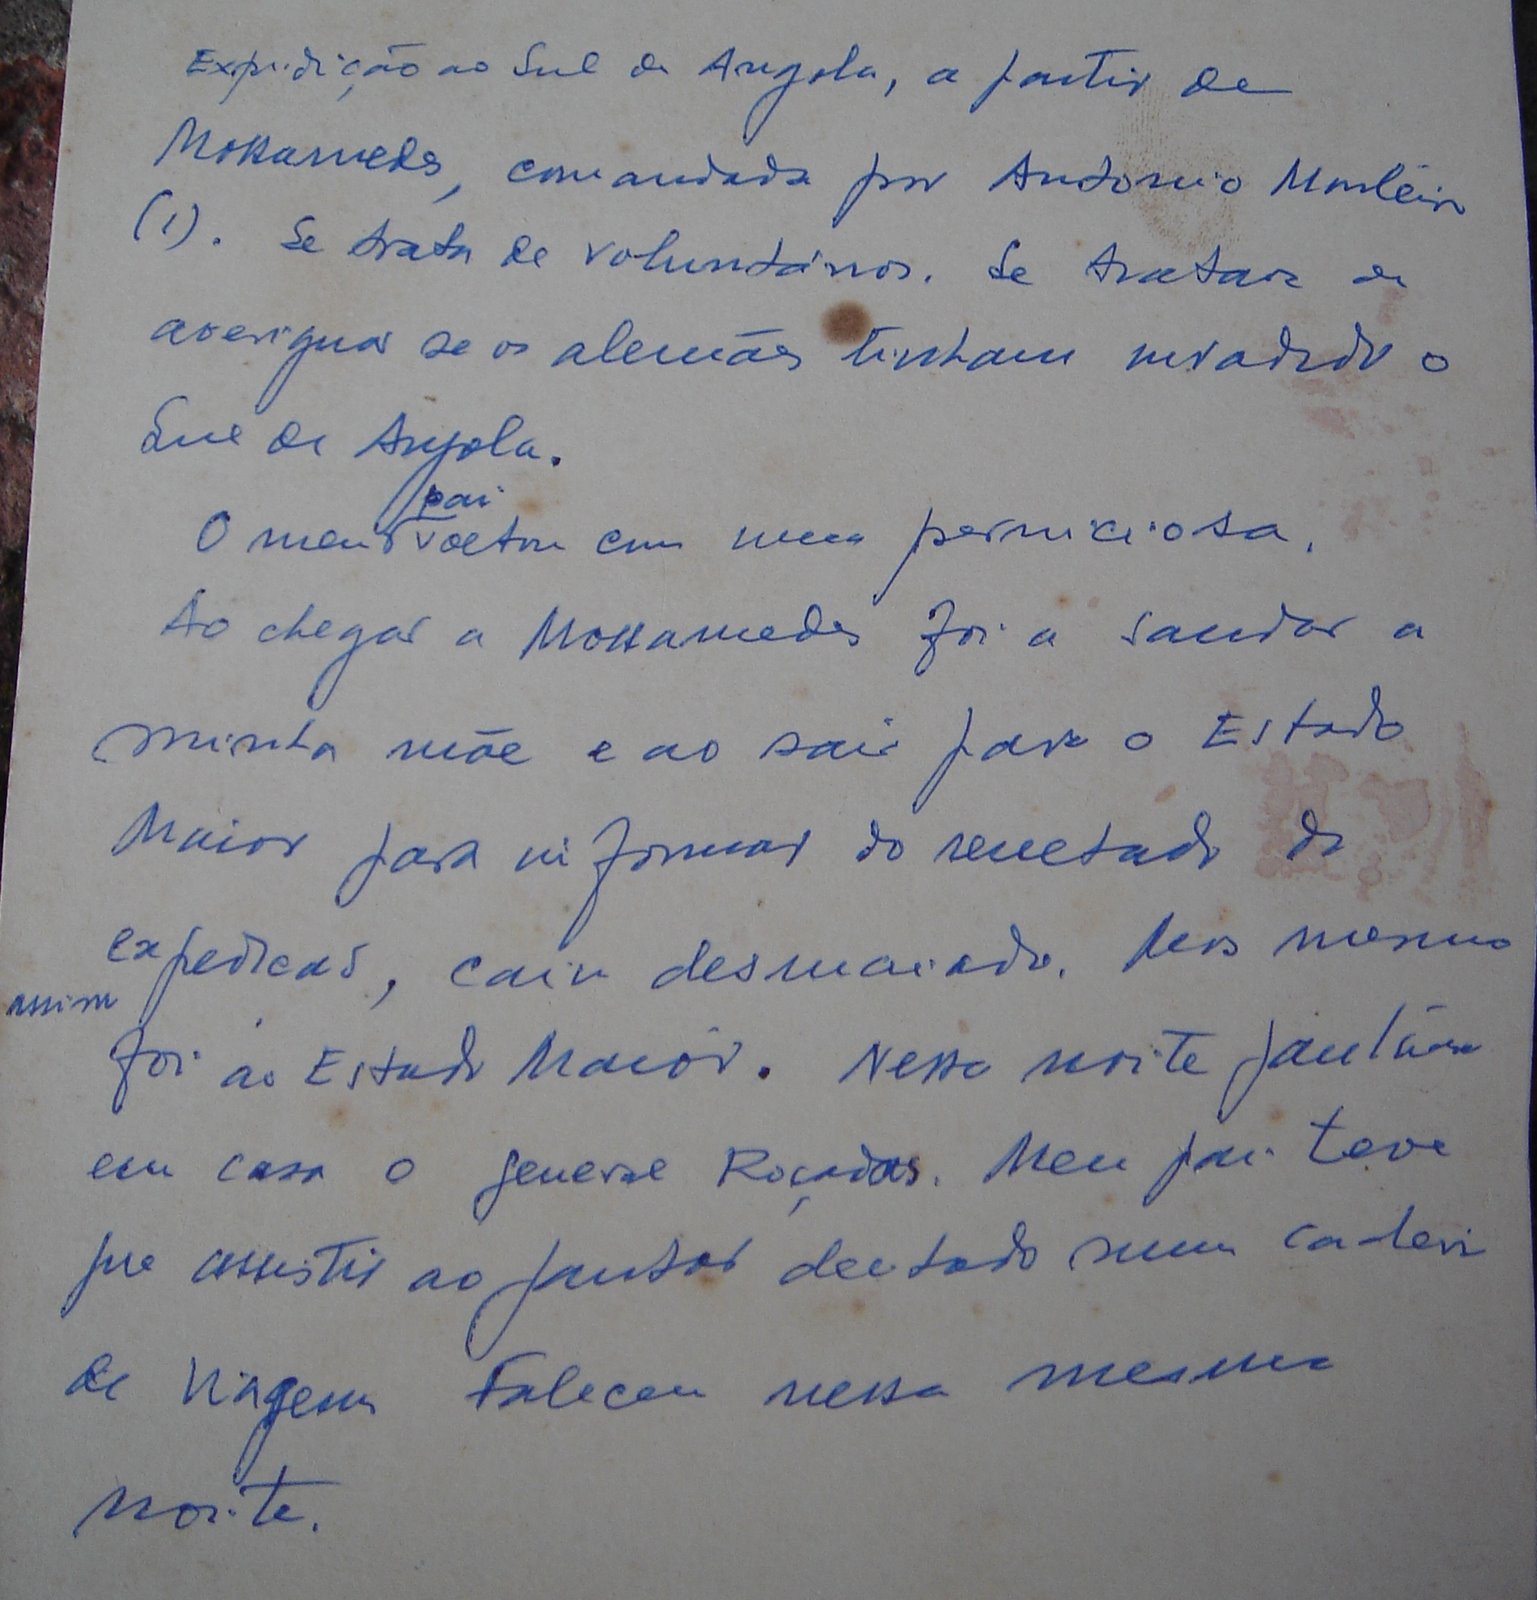 Expedição ao Sul de Angola, a partir de
Mossamedes, comandada por Antonio Monteiro
(1). Se trata de voluntários. Se tratava de
averiguar se os alemães tinham invadido o
Sul de Angola.
pai
O meu voltou com uma perniciosa.
Ao chegar a Mossamedes foi a saudar a
minha mãe e ao sair para o Estado
Maior para informar do resultado da
expedicão, caiu desmaiado. Mas mesmo
assim
foi ao Estado Maior. Nessa noite jantára
em casa o general Roçadas. Meu pai teve
que assistir ao jantar deitado numa cadeira
de viagem Faleceu nessa mesma
noite.